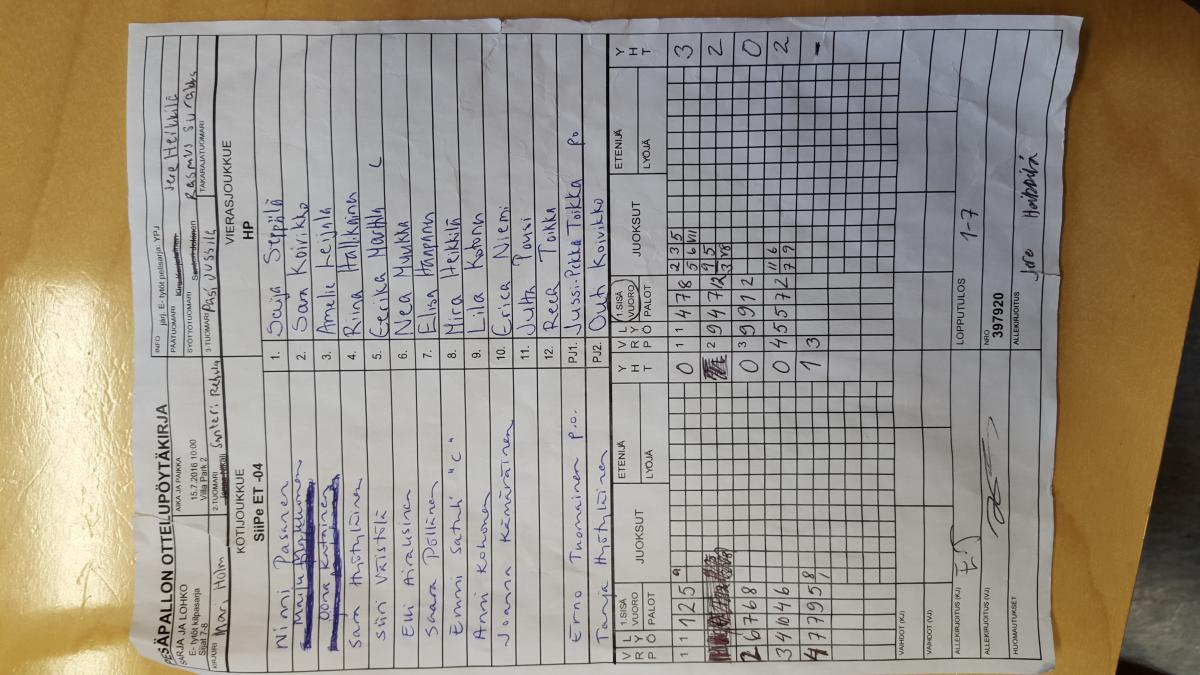 PESÄPALLON OTTELUPÖYTÄKIRJA
SARJA JA LOHKO
E- tytöt kilpasarja
Sijat 7-8
AIKA JA PAIKKA
15.7.2016 10:00
Villa Park 2
INFO järj. E- tytöt pelisarja: YPJ
PÄÄTUOMARI
Jere Heikkilä
SYÖTTÖTUOMARI
Rasmus
KIRJURI Mari Hulm
2-TUOMARI Santeri
3-TUOMARI Pasi Jussila
TAKARAJATUOMARI
KOTIJOUKKUE
SiiPe ET -04
VIERASJOUKKUE
HP
Ninni Pasanen 1. Seppälä
2. Sara Koivikko
Oona 3. Amelie Leijala
Sara Hyötyläinen 4. Riina Hallikainen
Siiri Väistölä 5. Eerika Marttila C
Elli Airaksinen 6. Nea Muukka
Saara Pöllänen 7. Elisa
Emmi "C" 8. Mira Heikkilä
Anni Kohonen 9. Lila
Joanna Kämäräinen 10. Erica Niemi
11. Jutta Pousi
12. Reea Toikka
Erno Tuomainen p.o. PJ1. Jussi-Pekka Toikka po
Tanja Hyötyläinen PJ2. Outi Koivikko
V R P L Y Ö 1.SISÄ VUORO PALOT JUOKSUT ETENIJÄ LYÖJÄ Y H T V R P L Y Ö 1.SISÄ VUORO PALOT JUOKSUT ETENIJÄ LYÖJÄ Y H T
1 1 1 2 5 9 0 1 1 4 7 8 2 3 5 5 6 VII 3
2 9 4 7 2
2 6 7 6 8 0 3 9 9 1 2 0
3 4 10 4 6 0 4 5 5 7 2 11 6 7 9 2
4 7 7 9 5 8 1 3 -
VAIHDOT (KJ)
VAIHDOT (VJ)
ALLEKIRJOITUS (KJ)
LOPPUTULOS 1-7
ALLEKIRJOITUS (VJ)
NRO
397920
HUOMAUTUKSET
ALLEKIRJOITUS Jere